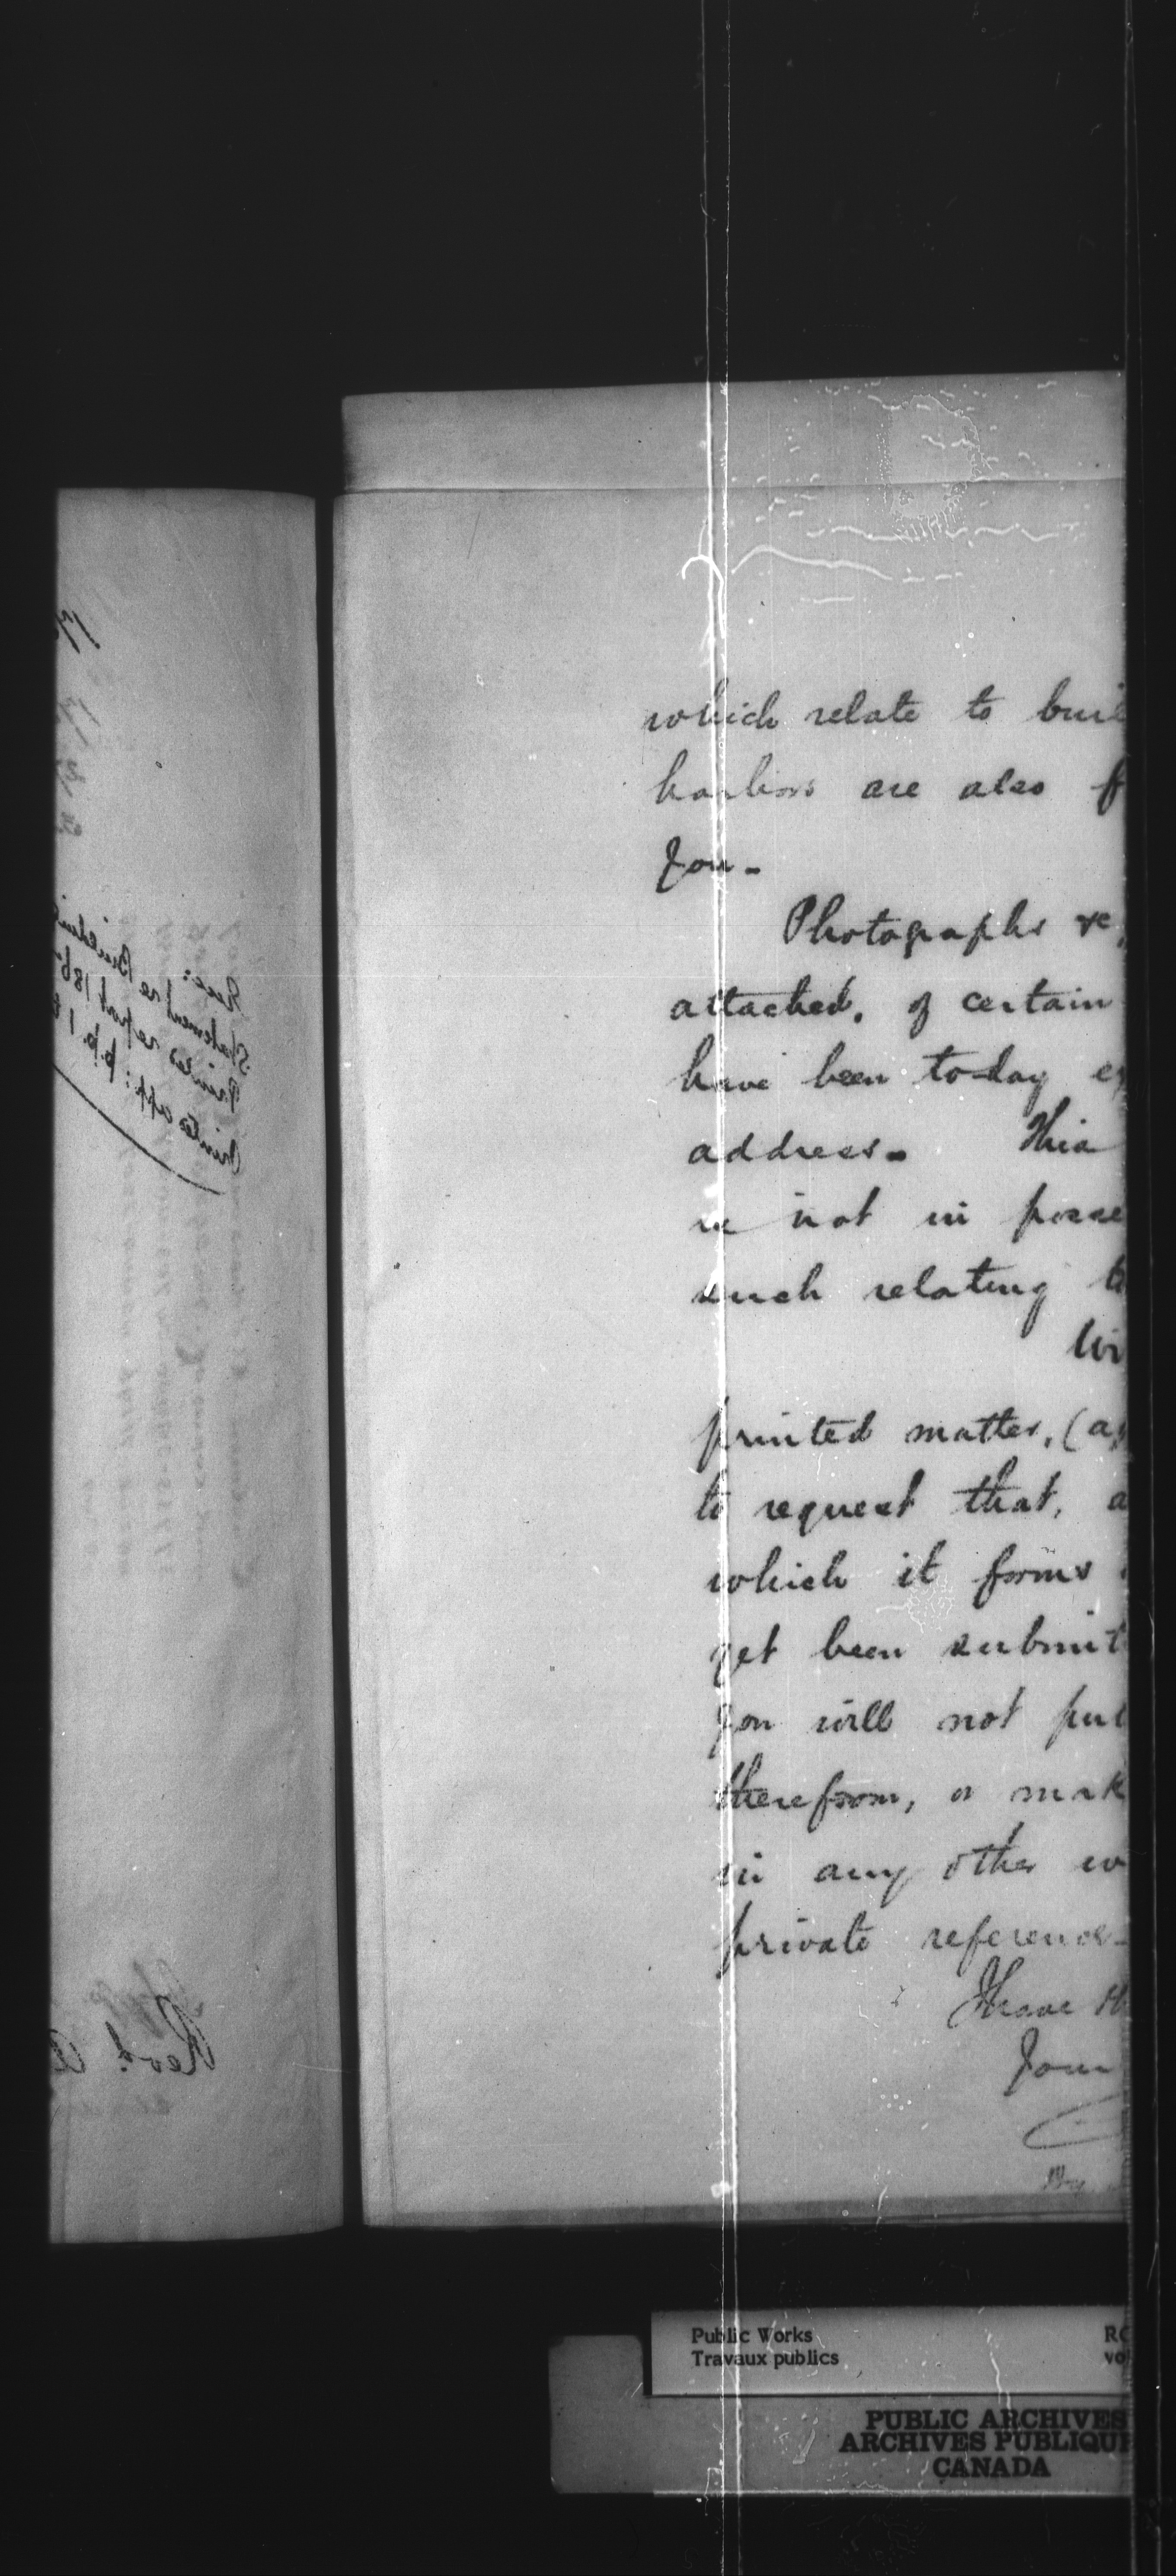 which relate to buil
harbors are also f
you -
Photographs re
attached, of certain
have been to-day
address - This
is not in posse
such relating t
Wi
printed matter, (a
to request that, a
which it forms
yet been submit
you will not pu
therefrom, or mak
in any other w
private reference -
I have th
Your
Encs:
Statement re Buildin
Printed report 186
Printed app: p.p. 1
Revd. A
Public Works
Travaux publics
RG
vo
PUBLIC ARCHIVES
ARCHIVES PUBLIQUE
CANADA